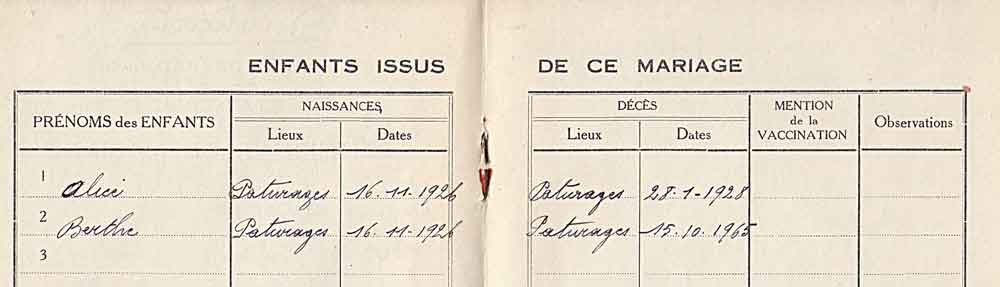 ENFANTS ISSUS DE CE MARIAGE
PRÉNOMS des ENFANTS NAISSANCES DÉCÈS MENTION de la VACCINATION Observations
Lieux Dates Lieux Dates
1 Alice Paturages 16.11.1926 Paturages 28-1-1928
2 Berthe Paturages 16.11-1926 Paturages 15.10.1965
3